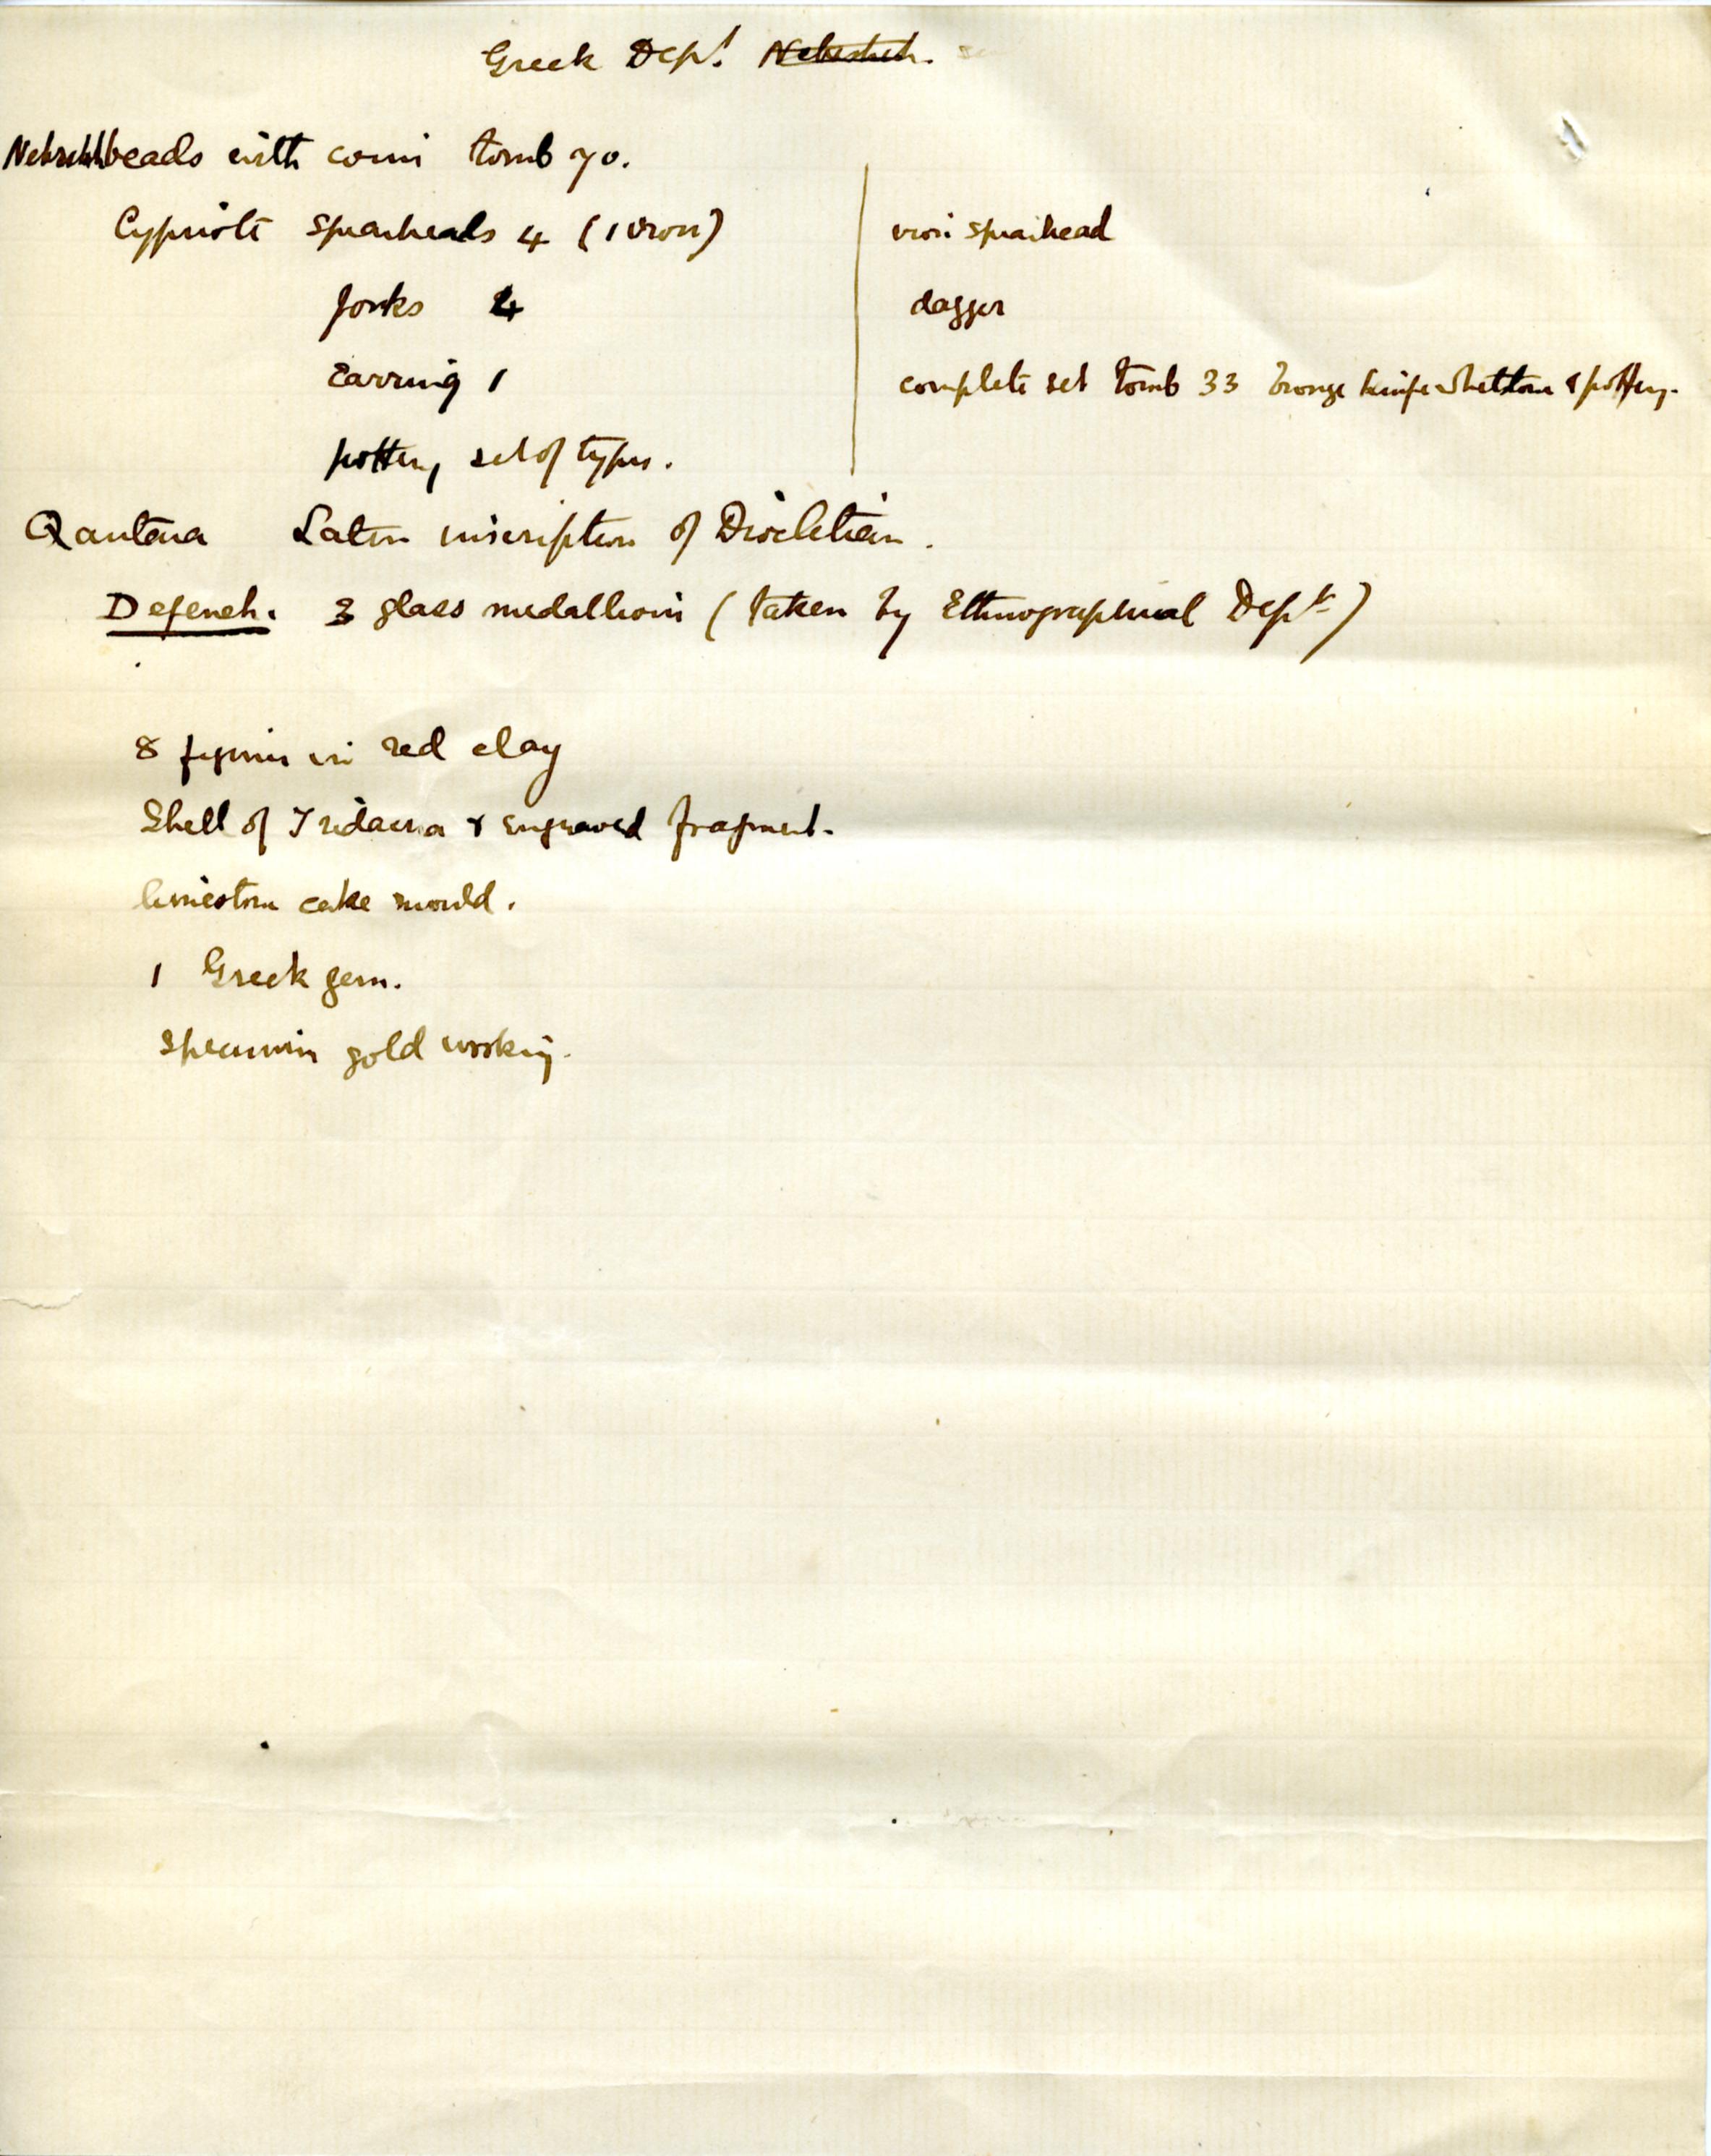 Greek Dept. Nebesheh.
Nebesheh beads with coin tomb 70.
Cypriote spearheads 4 (1 iron)
forks 4
Earring 1
pottery set of types.
iron spearhead
dagger
complete set tomb 33 bronze knife whetstone & pottery.
Qantara Latin inscription of Diocletian.
Defeneh. 3 glass medallions (taken by Ethnographical Dept)
8 figures in red clay
Shell of Tridacna & engraved fragment.
limestone cake mould.
1 Greek gem.
specimens gold working.